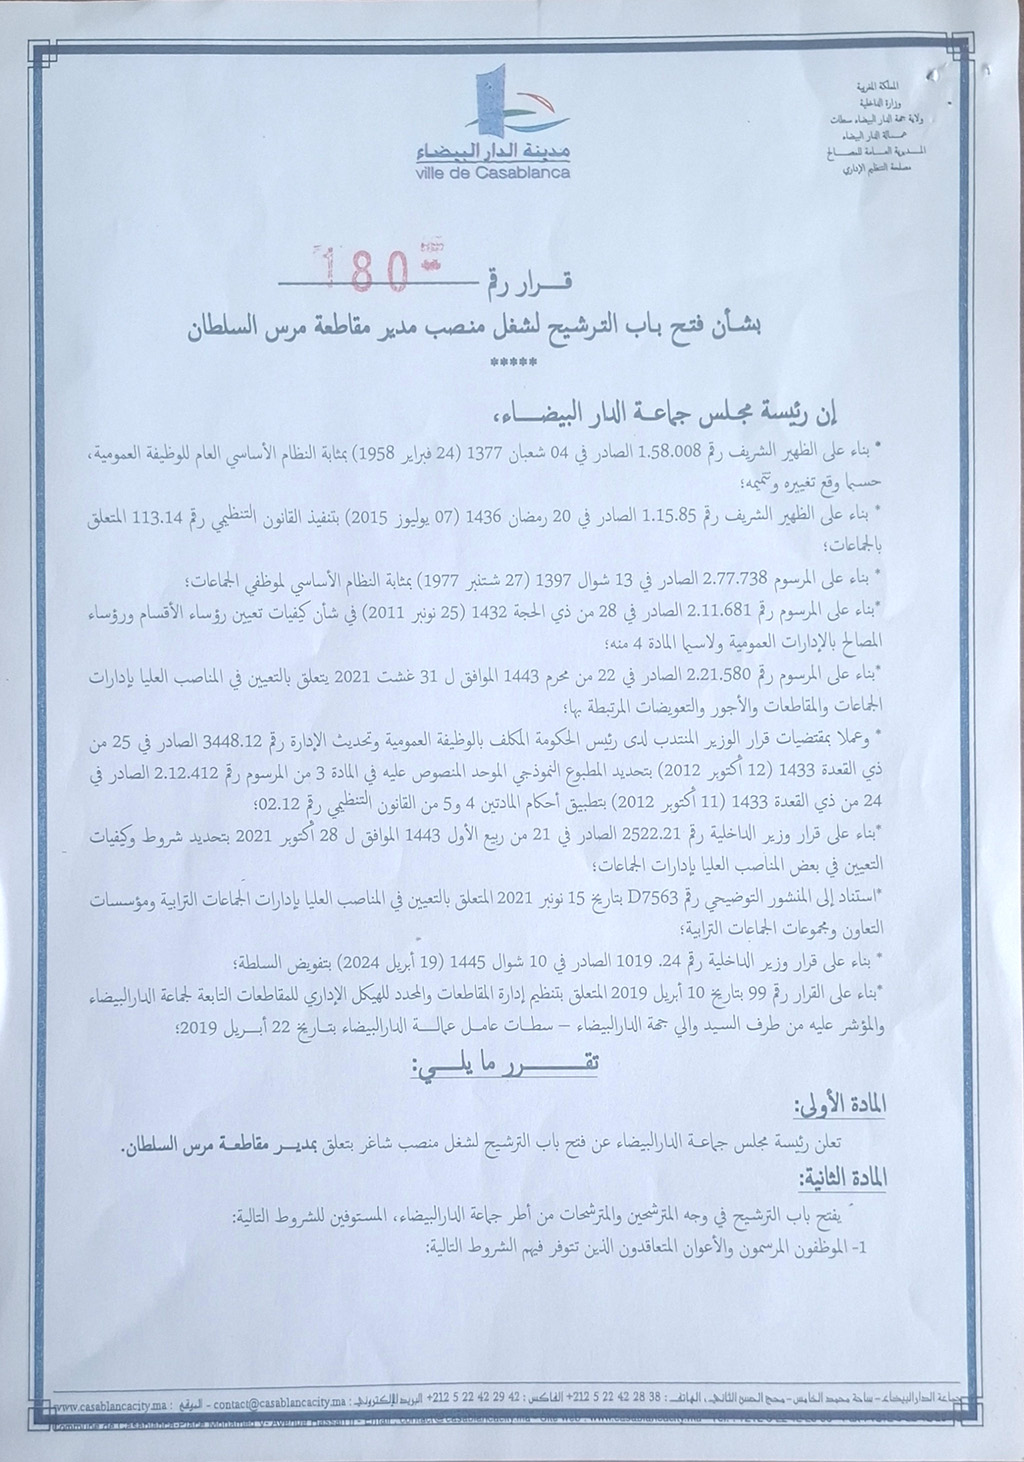 المملكة المغربية
وزارة الداخلية
ولاية جهة الدار البيضاء سطات
عمالة الدار البيضاء
المديرية العامة للمصالح
مصلحة التنظيم الإداري
مدينة الدار البيضاء
ville de Casablanca
قرار رقم 180
بشأن فتح باب الترشيح لشغل منصب مدير مقاطعة مرس السلطان
*****
إن رئيسة مجلس جماعة الدار البيضاء،
* بناء على الظهير الشريف رقم 1.58.008 الصادر في 04 شعبان 1377 (24 فبراير 1958) بمثابة النظام الأساسي العام للوظيفة العمومية،
حسبما وقع تغييره وتتميمه؛
* بناء على الظهير الشريف رقم 1.15.85 الصادر في 20 رمضان 1436 (07 يوليوز 2015) بتنفيذ القانون التنظيمي رقم 113.14 المتعلق
بالجماعات؛
* بناء على المرسوم 2.77.738 الصادر في 13 شوال 1397 (27 شتنبر 1977) بمثابة النظام الأساسي لموظفي الجماعات؛
*بناء على المرسوم رقم 2.11.681 الصادر في 28 من ذي الحجة 1432 (25 نونبر 2011) في شأن كيفيات تعيين رؤساء الأقسام ورؤساء
المصالح بالإدارات العمومية ولاسيما المادة 4 منه؛
*بناء على المرسوم رقم 2.21.580 الصادر في 22 من محرم 1443 الموافق ل 31 غشت 2021 يتعلق بالتعيين في المناصب العليا بإدارات
الجماعات والمقاطعات والأجور والتعويضات المرتبطة بها؛
* وعملا بمقتضيات قرار الوزير المنتدب لدى رئيس الحكومة المكلف بالوظيفة العمومية وتحديث الإدارة رقم 3448.12 الصادر في 25 من
ذي القعدة 1433 (12 أكتوبر 2012) بتحديد المطبوع النموذجي الموحد المنصوص عليه في المادة 3 من المرسوم رقم 2.12.412 الصادر في
24 من ذي القعدة 1433 (11 أكتوبر 2012) بتطبيق أحكام المادتين 4 و5 من القانون التنظيمي رقم 02.12؛
*بناء على قرار وزير الداخلية رقم 2522.21 الصادر في 21 من ربيع الأول 1443 الموافق ل 28 أكتوبر 2021 بتحديد شروط وكيفيات
التعيين في بعض المناصب العليا بإدارات الجماعات؛
*استناد إلى المنشور التوضيحي رقم D7563 بتاريخ 15 نونبر 2021 المتعلق بالتعيين في المناصب العليا بإدارات الجماعات الترابية ومؤسسات
التعاون ومجموعات الجماعات الترابية؛
* بناء على قرار وزير الداخلية رقم 24. 1019 الصادر في 10 شوال 1445 (19 أبريل 2024) بتفويض السلطة؛
*بناء على القرار رقم 99 بتاريخ 10 أبريل 2019 المتعلق بتنظيم إدارة المقاطعات والمحدد للهيكل الإداري للمقاطعات التابعة لجماعة الدارالبيضاء
والمؤشر عليه من طرف السيد والي جهة الدارالبيضاء – سطات عامل عمالة الدارالبيضاء بتاريخ 22 أبريل 2019؛
تقرر ما يلي:
المادة الأولى:
تعلن رئيسة مجلس جماعة الدارالبيضاء عن فتح باب الترشيح لشغل منصب شاغر يتعلق بمدير مقاطعة مرس السلطان.
المادة الثانية:
يفتح باب الترشيح في وجه المترشحين والمترشحات من أطر جماعة الدارالبيضاء، المستوفين للشروط التالية:
1- الموظفون المرسمون والأعوان المتعاقدون الذين تتوفر فيهم الشروط التالية:
جماعة الدارالبيضاء – ساحة محمد الخامس – محج الحسن الثاني، الهاتف : 38 28 42 22 5 212+ الفاكس : 42 29 42 22 5 212+ البريد الإلكتروني : contact@casablancacity.ma - الموقع : www.casablancacity.ma